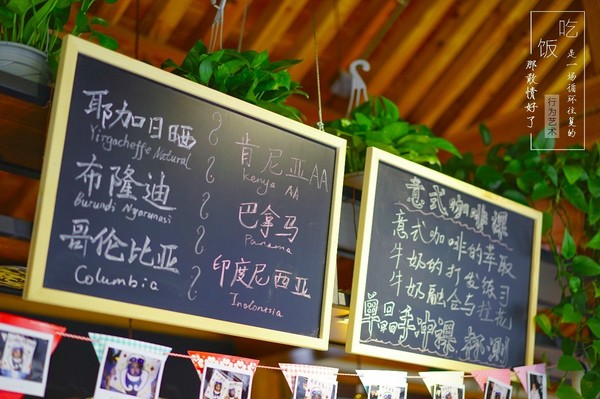 耶加日晒
Yirgacheffe Natural
布隆迪
Burundi Ngorunusi
哥伦比亚
Columbia
肯尼亚AA
Kenya AA
巴拿马
Panama
印度尼西亚
Indonesia
意式咖啡课
意式咖啡的萃取
牛奶的打发练习
牛奶融合与拉花
单品手冲课 杯测
吃饭
是一场循环往复的
行为艺术
那敢情好了